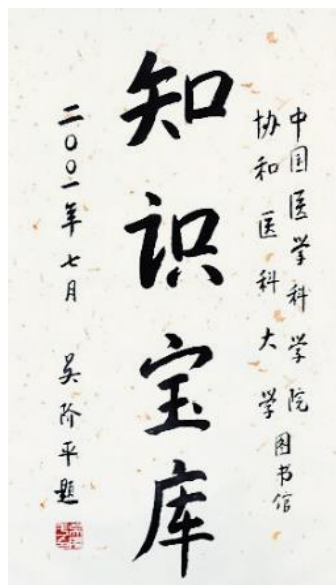 中国医学科学院
协和医科大学 图书馆
知识宝库
二〇〇一年七月 吴阶平题